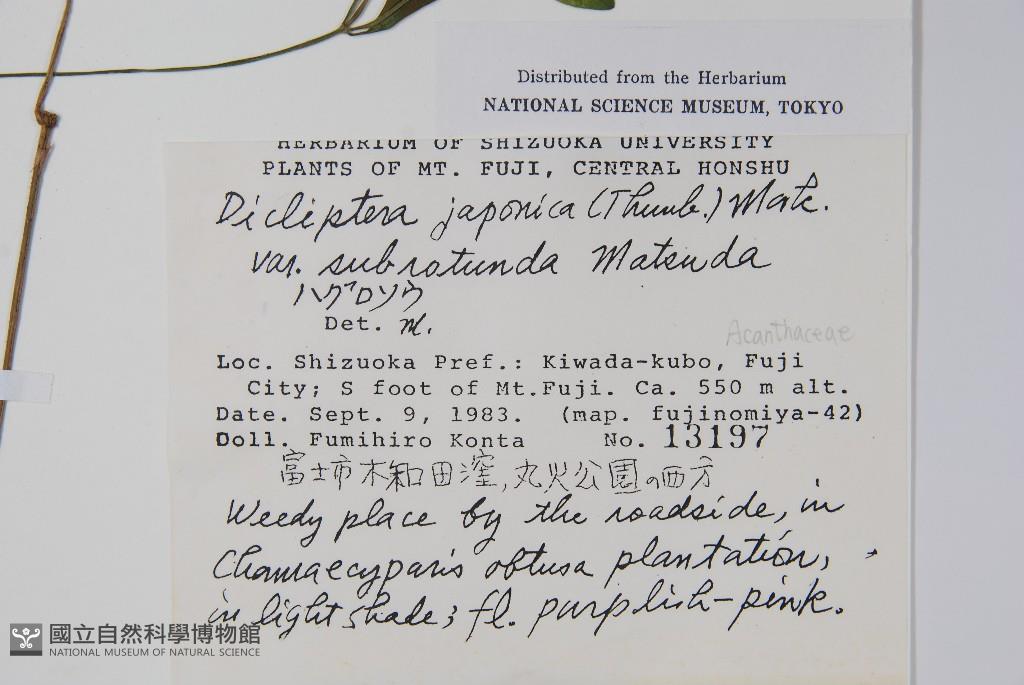 Distributed from the Herbarium
NATIONAL SCIENCE MUSEUM, TOKYO
HERBARIUM OF SHIZUOKA UNIVERSITY
PLANTS OF MT. FUJI, CENTRAL HONSHU
Dicliptera japonica (Thunb.) Mak.
var. subrotunda Matsuda
ハグロソウ
Det. M.
Acanthaceae
Loc. Shizuoka Pref.: Kiwada-kubo, Fuji
City; S foot of Mt.Fuji. Ca. 550 m alt.
Date. Sept. 9, 1983. (map. fujinomiya-42)
Doll. Fumihiro Konta No. 13197
富士市木和田窪,丸火公園の西方
Weedy place by the roadside, in
Chamaecyparis obtusa plantation,
in light shade; fl. purplish-pink.
國立自然科學博物館
NATIONAL MUSEUM OF NATURAL SCIENCE